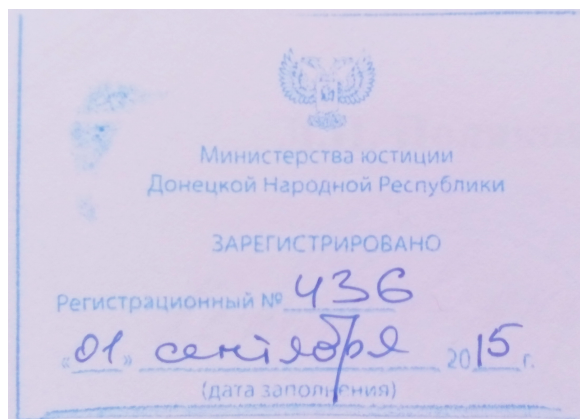 Министерства юстиции
Донецкой Народной Республики
ЗАРЕГИСТРИРОВАНО
Регистрационный № 436
«01» сентября 2015 г.
(дата заполнения)